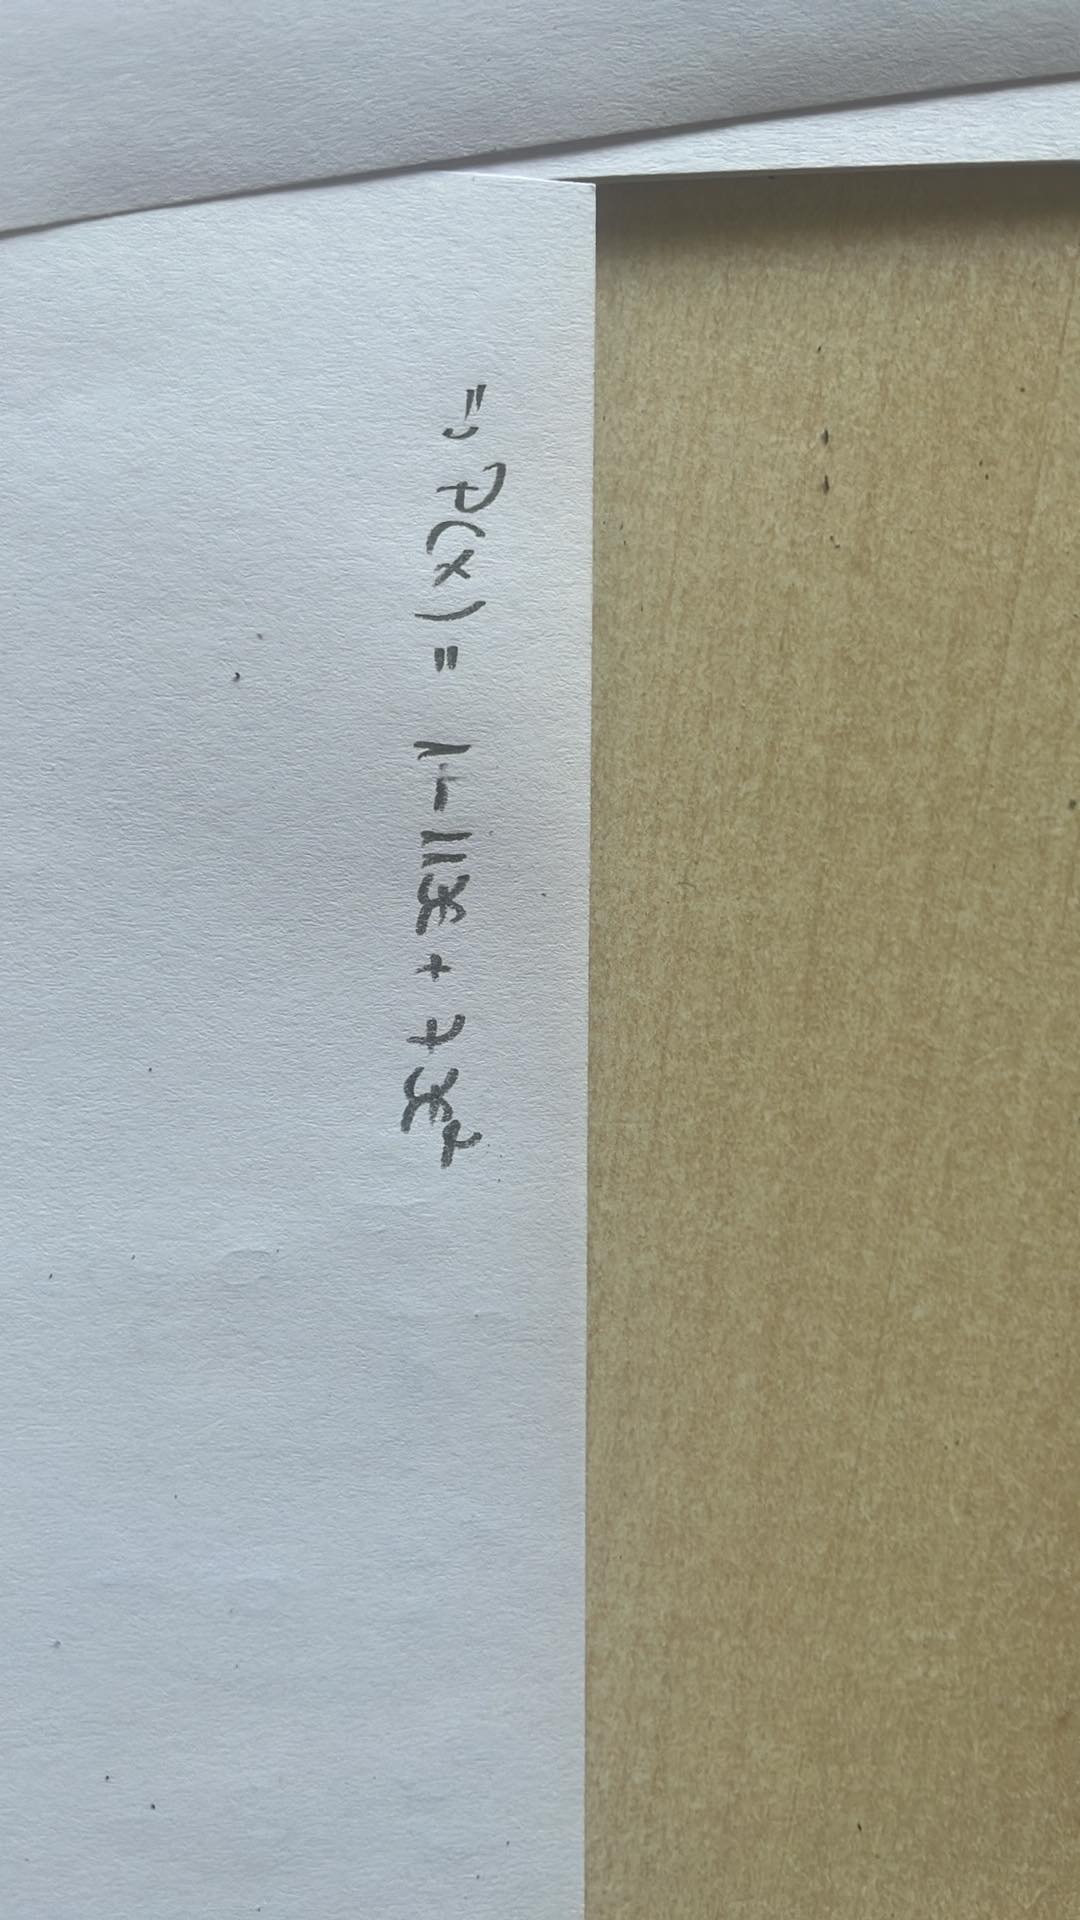 => P(x) = 1-11x + 7x²